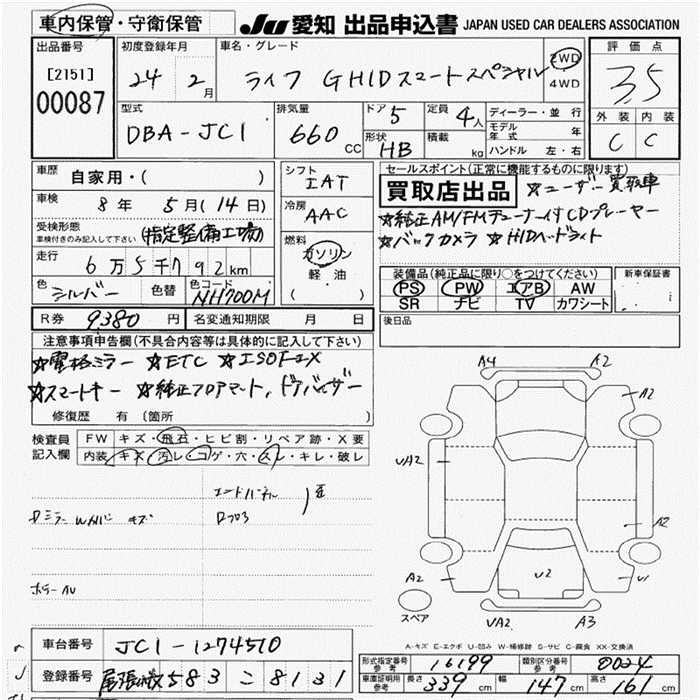 車内保管・守衛保管
JU 愛知 出品申込書 JAPAN USED CAR DEALERS ASSOCIATION
出品番号
[2151]
00087
初度登録年月
24年 2月
車名・グレード
ライフ GHIDスマートスペシャル
2WD
4WD
評価点
3.5
外装 内装
C C
型式
DBA-JC1
排気量
660 CC
ドア 5
形状 HB
定員 4人
積載 kg
ディーラー・並行
モデル年式 年
ハンドル 左・右
車歴
自家用・( )
車検
8年 5月(14日)
受検形態
車検付きのみ記入して下さい
(指定整備工場)
走行
6万5千792km
色
シルバー
色替
色コード
NH700M
シフト
IAT
冷房
AAC
燃料
ガソリン
軽油
( )
セールスポイント(正常に機能するものに限ります)
買取店出品 ☆ユーザー買取車
☆純正AM/FMチューナー付CDプレーヤー
☆バックカメラ ☆HIDヘッドライト
装備品(純正品に限り○をつけてください)
PS PW エアB AW
SR ナビ TV カワシート
新車保証書
R券 9380円
名変通知期限 月 日
後日品
注意事項申告欄(不具合内容等は具体的に記入して下さい)
☆電格ミラー ☆ETC ☆ISOFIX
☆スマートキー ☆純正フロアマット、ドアバイザー
修復歴 有 (箇所 )
検査員記入欄
FW キズ・飛石・ヒビ割・リペア跡・X要
内装 キズ・汚レ・コゲ・穴・スレ・キレ・破レ
エンドパネル
Dミラー Wカバー キズ
A4 A2
A2
UA2
A2
A2
U2
U1
スペア
UA2 A3
A-キズ E-エクボ U-凹み W-補修跡 S-サビ C-腐食 XX-交換済
車台番号
JC1-1274510
登録番号
尾張小牧583こ8131
形式指定番号
参考
16199
類別区分番号
参考
0024
車庫証明用
参考
長さ 339 cm
幅 147 cm
高さ 161 cm